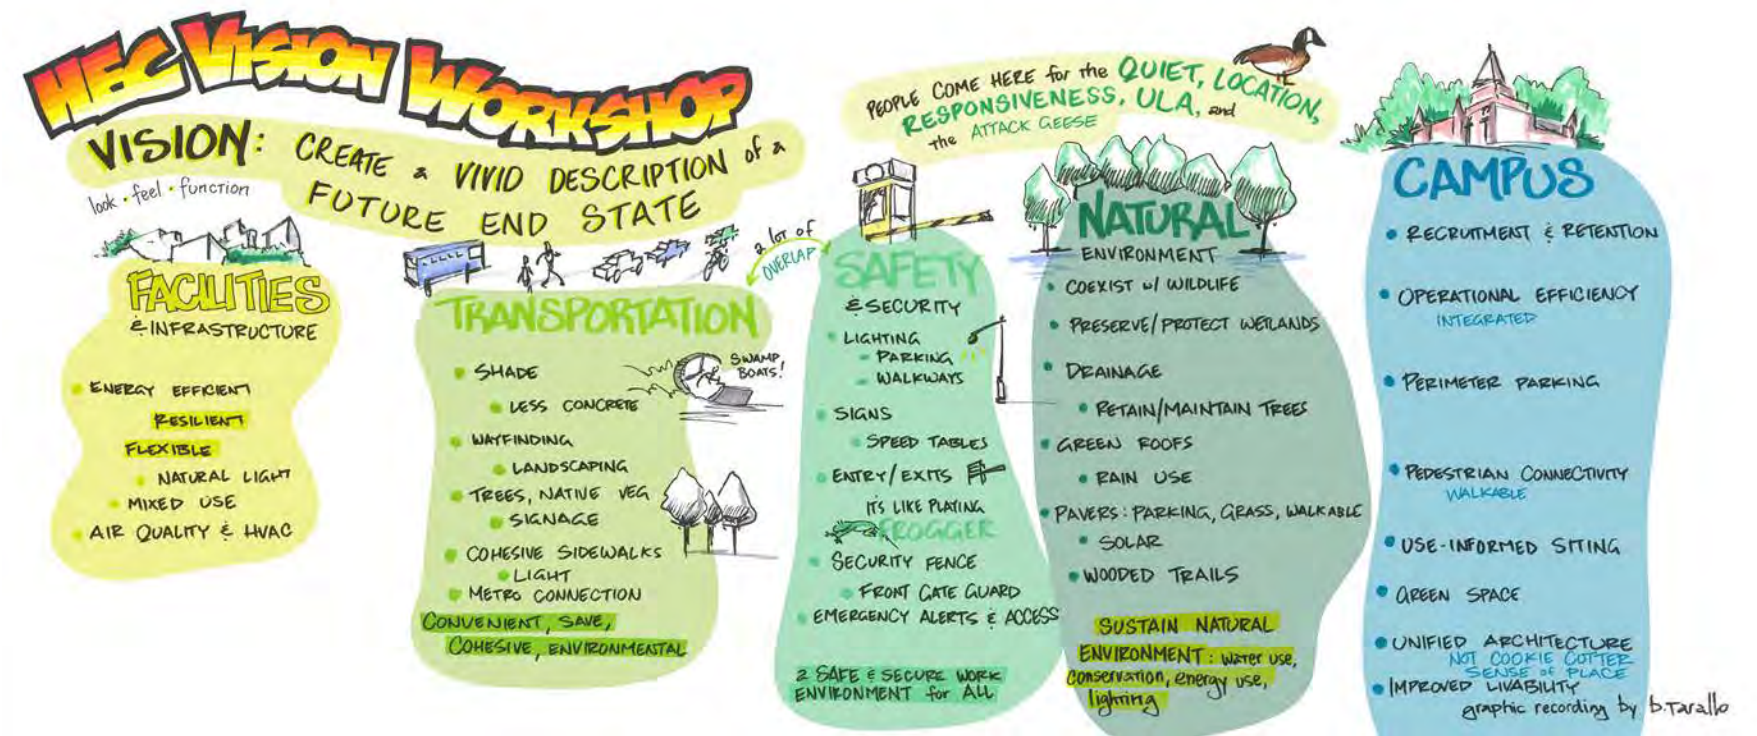 HEC VISION WORKSHOP
VISION: CREATE a VIVID DESCRIPTION of a
FUTURE END STATE
look • feel • function
PEOPLE COME HERE for the QUIET, LOCATION,
RESPONSIVENESS, ULA, and
the ATTACK GEESE
FACILITIES
& INFRASTRUCTURE
ENERGY EFFICIENT
RESILIENT
FLEXIBLE
NATURAL LIGHT
MIXED USE
AIR QUALITY & HVAC
TRANSPORTATION
SHADE
LESS CONCRETE
WAYFINDING
LANDSCAPING
TREES, NATIVE VEG
SIGNAGE
COHESIVE SIDEWALKS
LIGHT
METRO CONNECTION
CONVENIENT, SAVE,
COHESIVE, ENVIRONMENTAL
SWAMP
BOATS!
a lot of
OVERLAP
SAFETY
& SECURITY
LIGHTING
PARKING
WALKWAYS
SIGNS
SPEED TABLES
ENTRY/EXITS
IT'S LIKE PLAYING
FROGGER
SECURITY FENCE
FRONT GATE GUARD
EMERGENCY ALERTS & ACCESS
a SAFE & SECURE WORK
ENVIRONMENT for ALL
NATURAL
ENVIRONMENT
COEXIST w/ WILDLIFE
PRESERVE/PROTECT WETLANDS
DRAINAGE
RETAIN/MAINTAIN TREES
GREEN ROOFS
RAIN USE
PAVERS: PARKING, GRASS, WALKABLE
SOLAR
WOODED TRAILS
SUSTAIN NATURAL
ENVIRONMENT: water use,
conservation, energy use,
lighting
CAMPUS
RECRUITMENT & RETENTION
OPERATIONAL EFFICIENCY
INTEGRATED
PERIMETER PARKING
PEDESTRIAN CONNECTIVITY
WALKABLE
USE-INFORMED SITING
GREEN SPACE
UNIFIED ARCHITECTURE
NOT COOKIE CUTTER
SENSE of PLACE
IMPROVED LIVABILITY
graphic recording by b.Tarallo